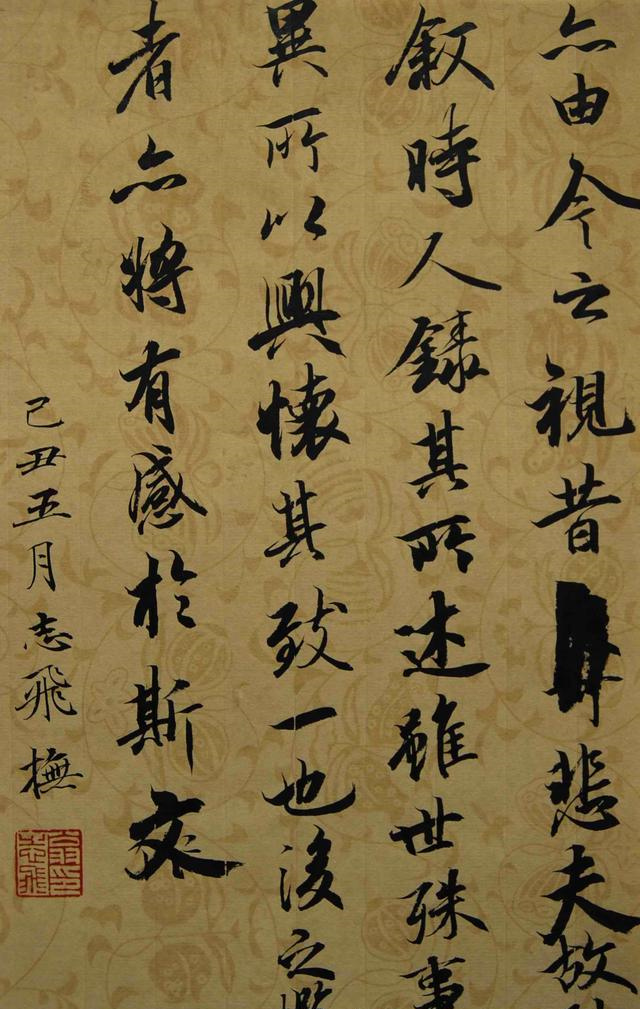 亦由今之視昔悲夫故
叙時人錄其所述雖世殊事
異所以興懷其致一也後之
者亦將有感於斯文
己丑五月志飛橅
翁印志飛